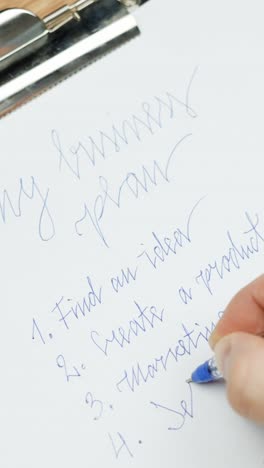 my business
plan
1. Find an idea
2. Create a product
3. Marketing
4. Se